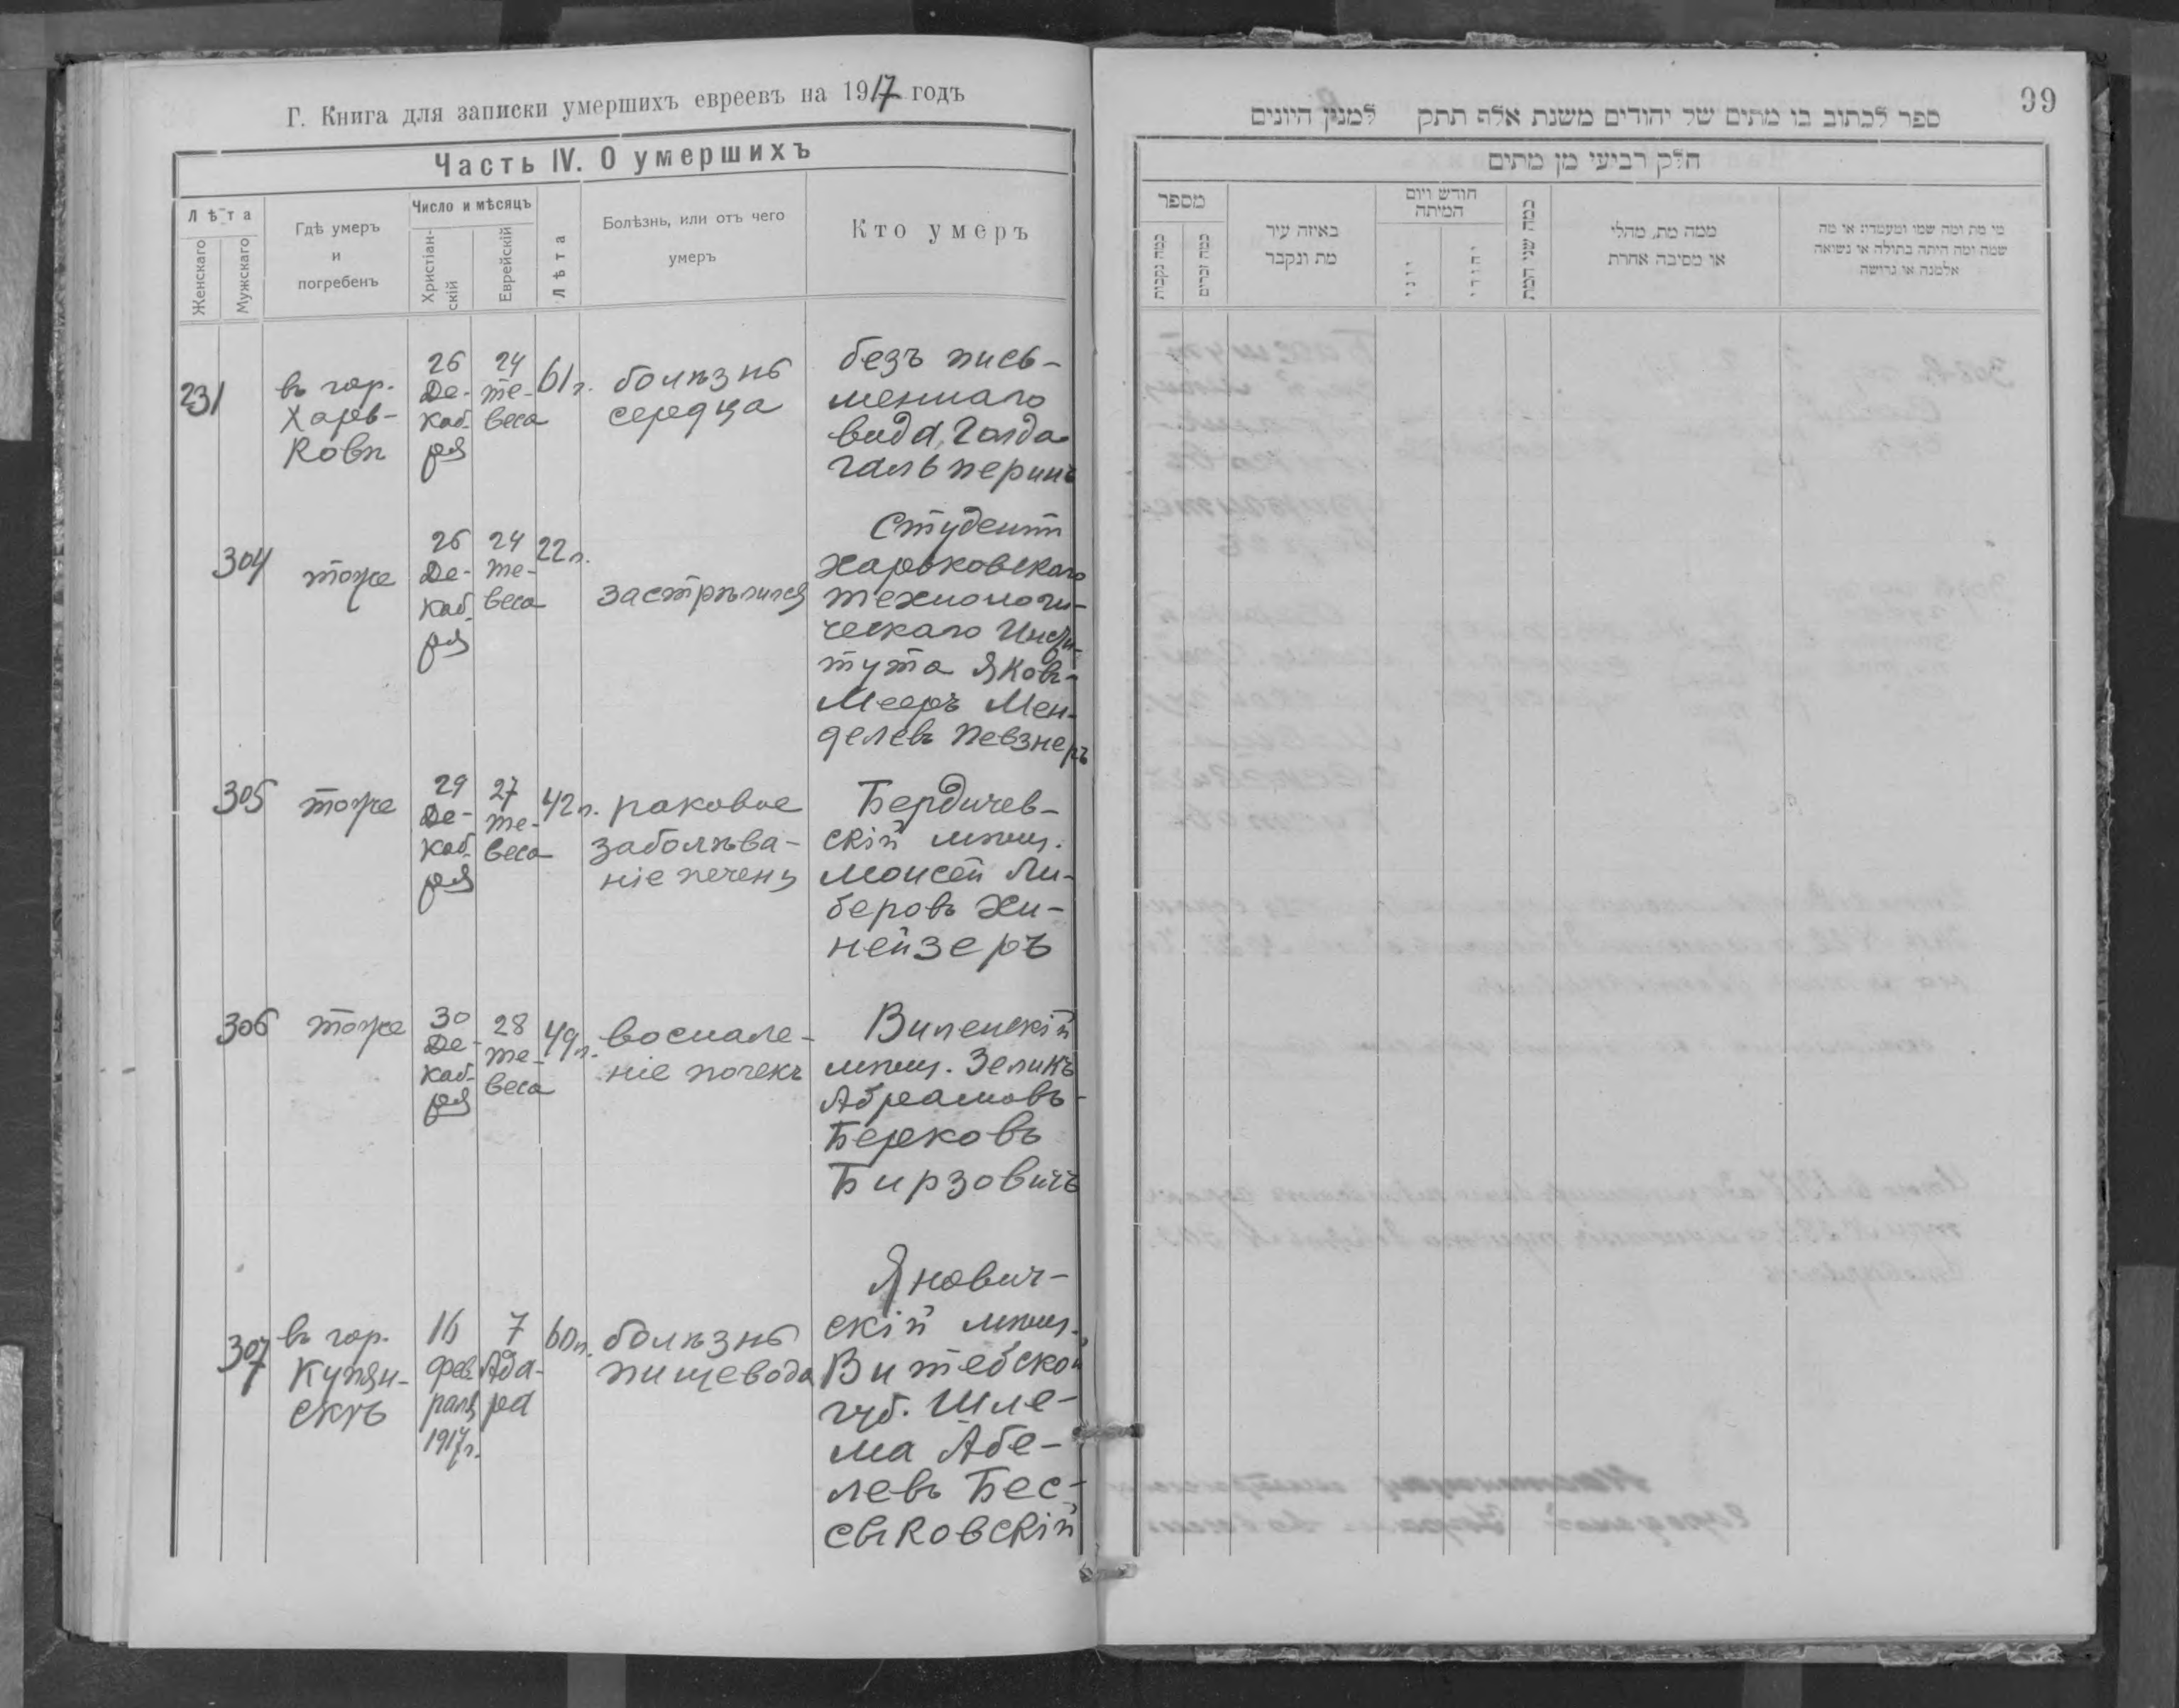 Г. Книга для записки умершихъ евреевъ на 1917 годъ
Часть IV. О умершихъ
Лѣта
Женскаго
Мужскаго
Гдѣ умеръ
и
погребенъ
Число и мѣсяцъ
Христіан-
скій
Еврейскій
Лѣта
Болѣзнь, или отъ чего
умеръ
Кто умеръ
231
въ гор.
Харь-
ковѣ
26
Де-
каб-
ря
24
те-
веса
61 г.
болѣзнь
сердца
безъ пись-
меннаго
вида, Голда
Гальперинъ
304
тоже
26
Де-
каб-
ря
24
те-
веса
22 л.
застрѣлился
Студентъ
Харьковскаго
технологи-
ческаго Инсти-
тута Яковъ-
Мееръ Мен-
делевъ Певзнеръ
305
тоже
29
Де-
каб-
ря
27
те-
веса
42 л.
раковое
заболѣва-
ніе печени
Бердичев-
скій мѣщ.
Моисей Ли-
беровъ Хи-
нейзеръ
306
тоже
30
Де-
каб-
ря
28
те-
веса
49 л.
воспале-
ніе почекъ
Виленскій
мѣщ. Зеликъ
Абрамовъ-
Берковъ
Бирзовичъ
307
въ гор.
Купян-
скѣ
16
фев-
раля
1917 г.
7
Ада-
ра
60 л.
болѣзнь
пищевода
Янович-
скій мѣщ.
Витебской
губ. Шле-
ма Абе-
левъ Бес-
ськовскій
99
ספר לכתוב בו מתים של יהודים משנת אלף תתק למנין היונים
חלק רביעי מן מתים
מספר
כמה נקבות
כמה זכרים
באיזה עיר
מת ונקבר
חודש ויום
המיתה
יוני
יהודי
כמה שני המת
ממה מת, מחלי
או מסיבה אחרת
מי מת ומה שמו ומעמדיו או מה
שמה ומה היתה בתולה או נשואה
אלמנה או גרושה